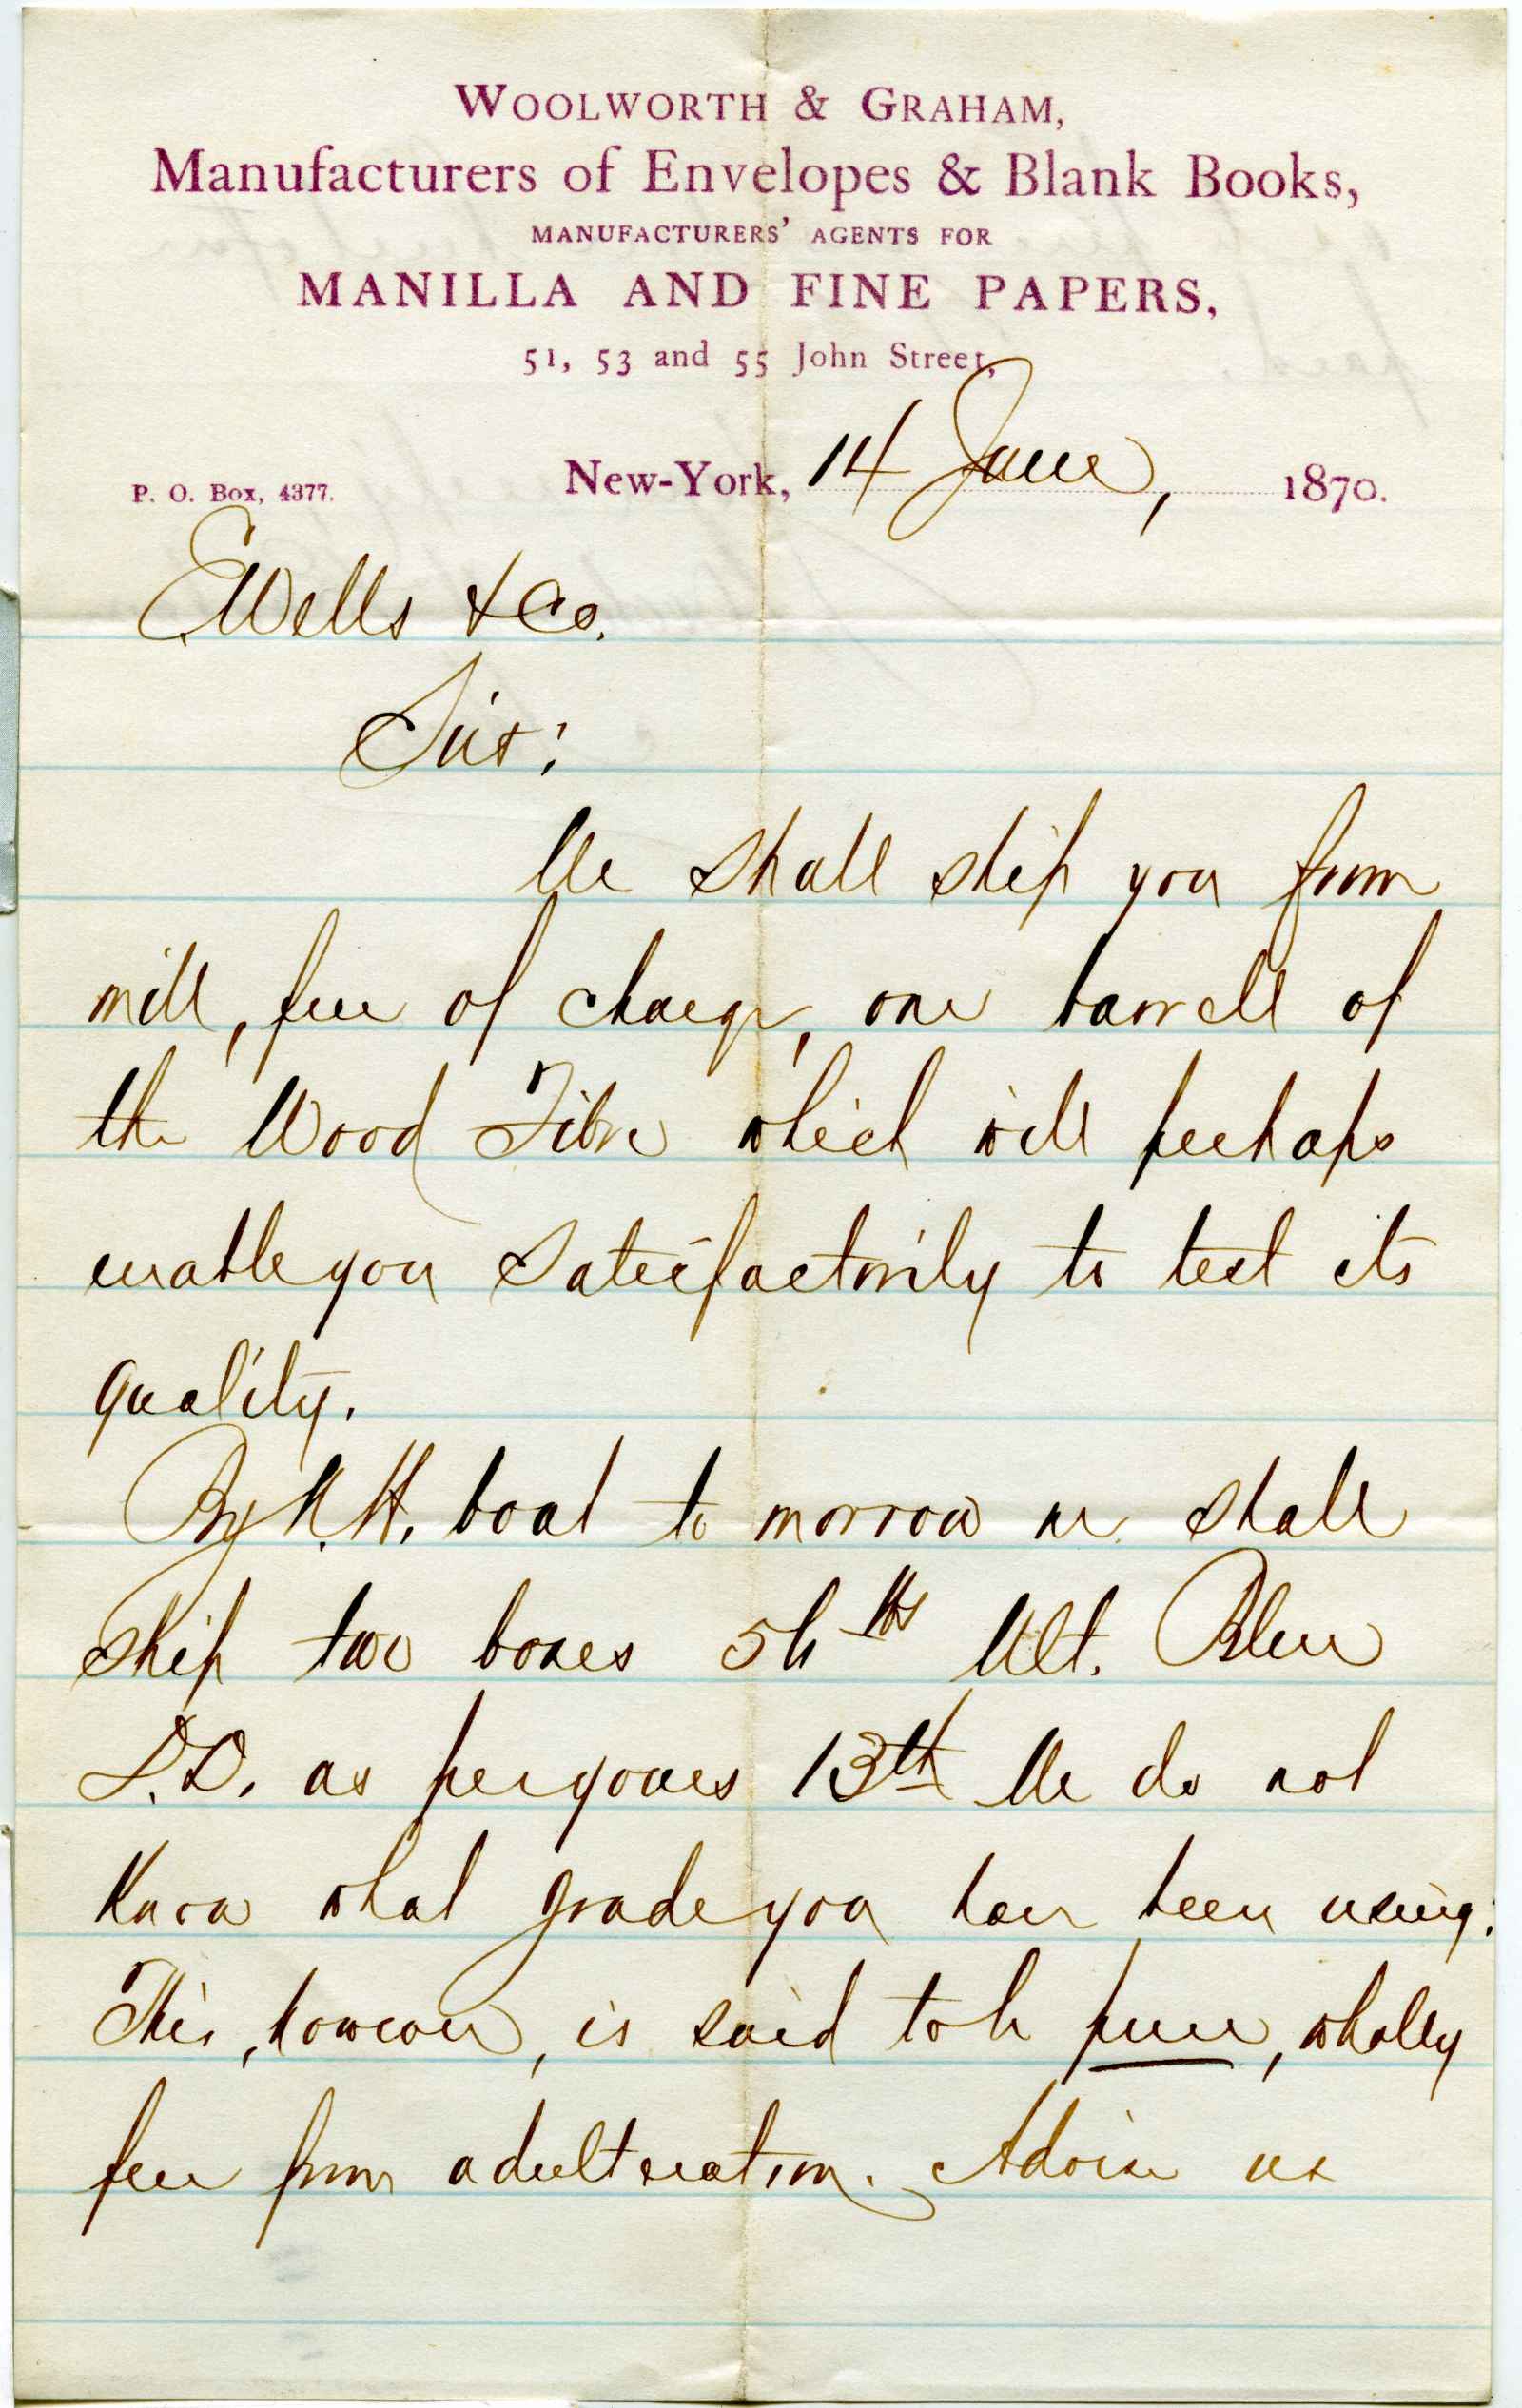 WOOLWORTH & GRAHAM,
Manufacturers of Envelopes & Blank Books,
MANUFACTURERS' AGENTS FOR
MANILLA AND FINE PAPERS,
51, 53 and 55 John Street,
P. O. Box, 4377. New-York, 14 June, 1870.
E. Wells & Co.
Sirs:
We shall ship you from
mill, free of charge, one barrell of
the Wood Fibre which will perhaps
enable you satisfactorily to test its
quality.
By N.H. boat to morrow we shall
ship two boxes 56 lbs Ult. Blue
as per yours 13th We do not
know what grade you have been using.
This, however, is said to be pure, wholly
free from adulteration. Advise us